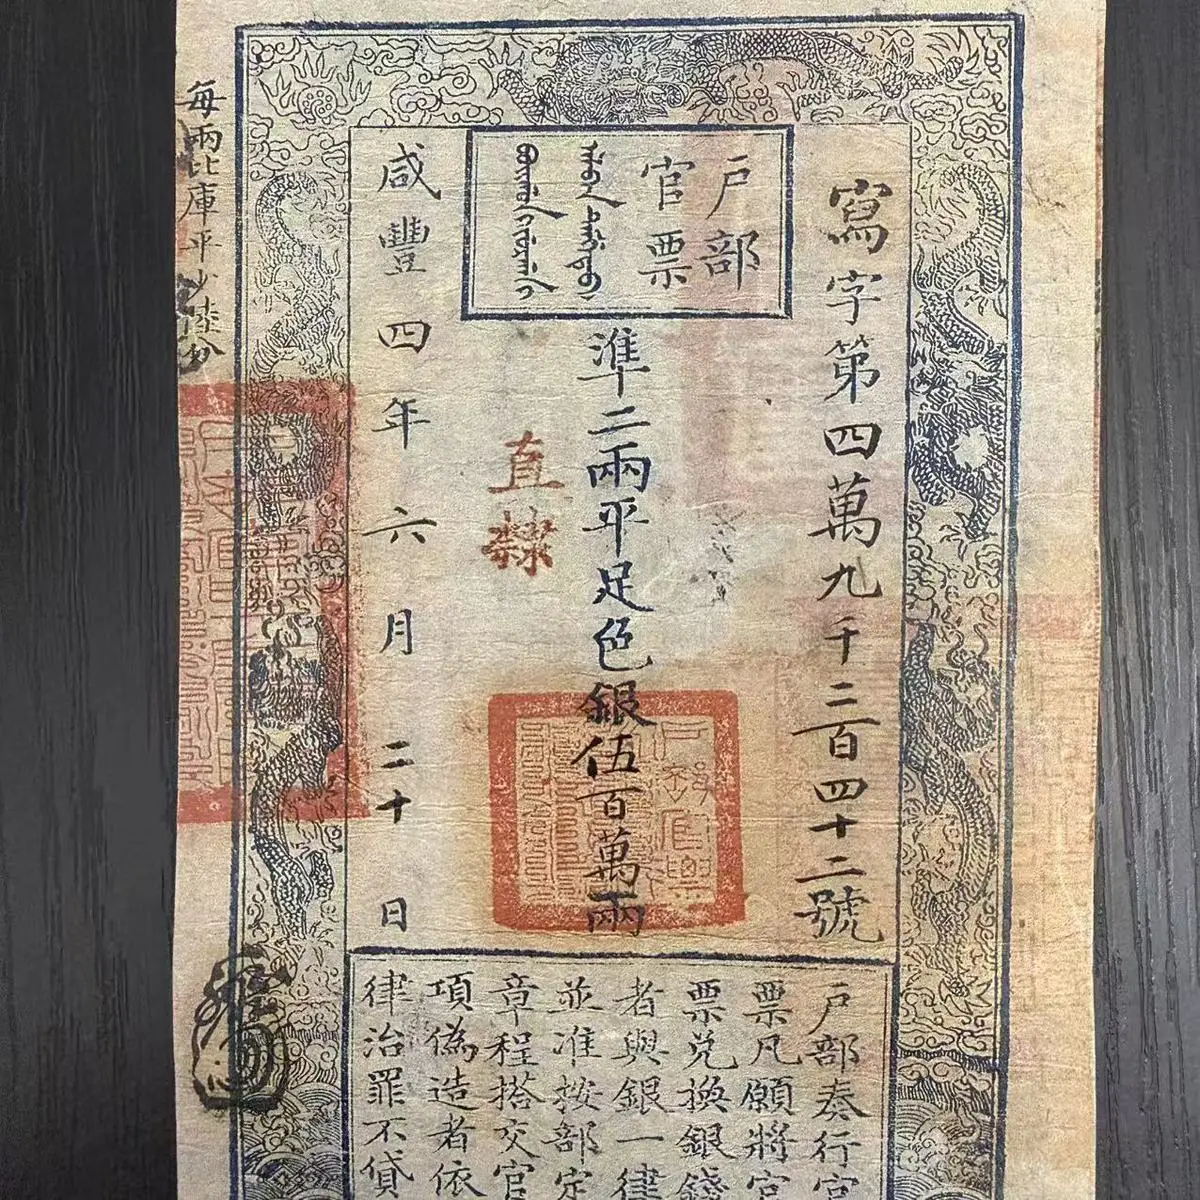 戶部
官票
寫字第四萬九千二百四十二號
準二兩平足色銀伍百萬兩
直隸
咸豐四年六月二十日
戶部奏行官
票凡願將官
票兌換銀錢
者與銀一律
並准按部定
章程搭交官
項偽造者依
律治罪不貸
每兩比庫平少陸分